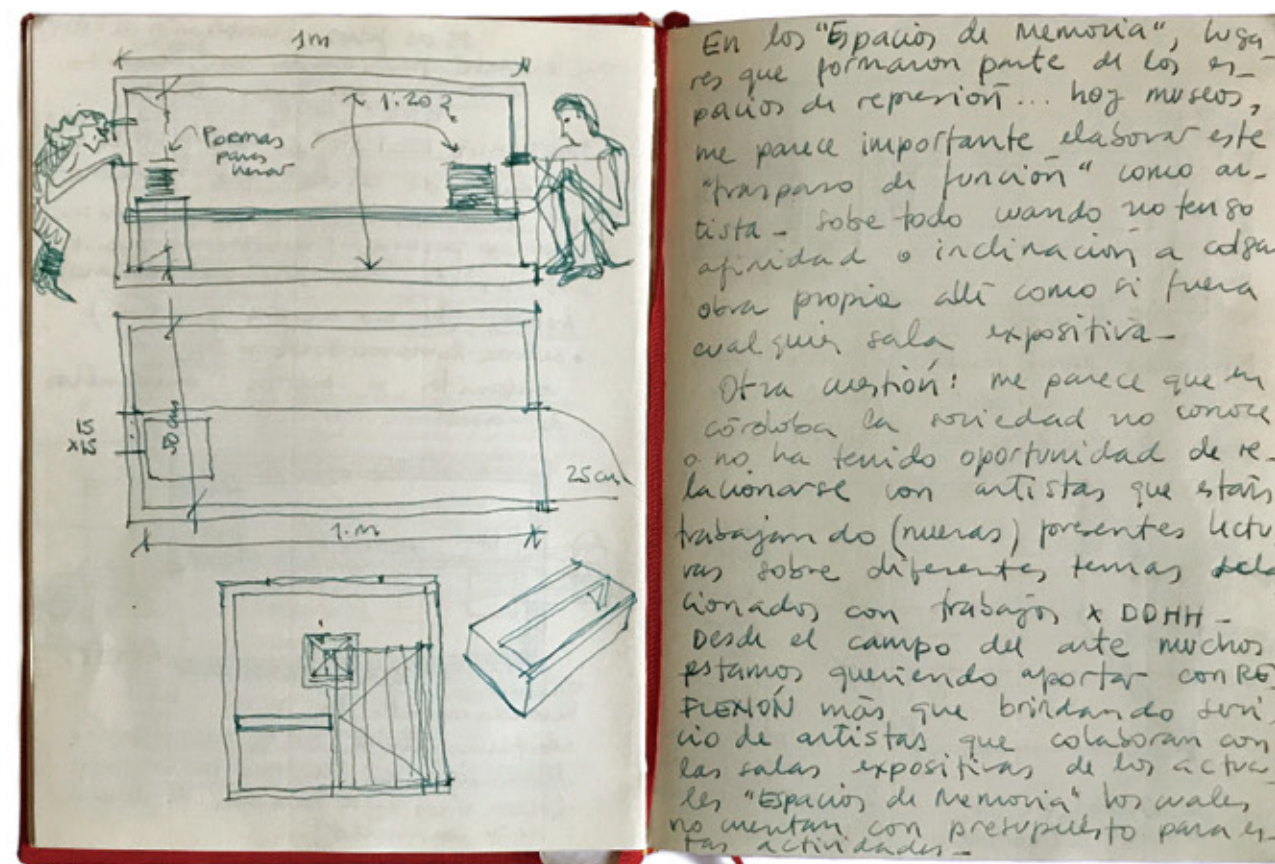 1m
1.20?
Poemas
para
llevar
15
x15
50 cms
25 cm
1.m
En los "Espacios de Memoria", luga_
res que formaron parte de los es_
pacios de represión... hoy museos,
me parece importante elaborar este
"traspaso de función" como ar_
tista_ sobre todo cuando no tengo
afinidad o inclinación a colgar
obra propia allí como si fuera
cualquier sala expositiva_
Otra cuestión: me parece que en
córdoba la sociedad no conoce
o no ha tenido oportunidad de re_
lacionarse con artistas que están
trabajando (nuevas) presentes lectu
ras sobre diferentes temas rela
cionados con trabajos x DDHH_
Desde el campo del arte muchos
estamos queriendo aportar con RE
FLEXIÓN más que brindando servi
cio de artistas que colaboran con
las salas expositivas de los actua
les "Espacios de Memoria" los cuales
no cuentan con presupuesto para es
tas actividades_